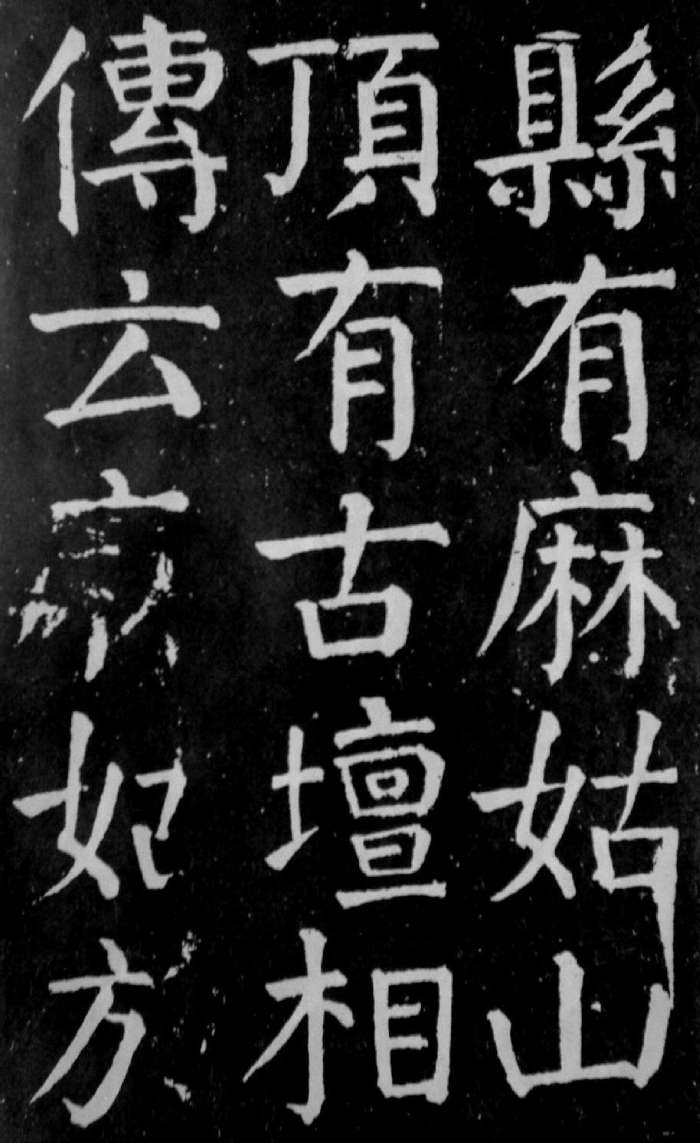 縣有麻姑山
頂有古壇相
傳云